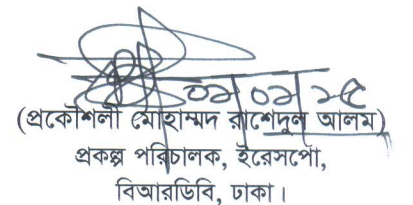 ০১ ০১ ২৫
(প্রকৌশলী মোহাম্মদ রাশেদুল আলম)
প্রকল্প পরিচালক, ইরেসপো,
বিআরডিবি, ঢাকা।